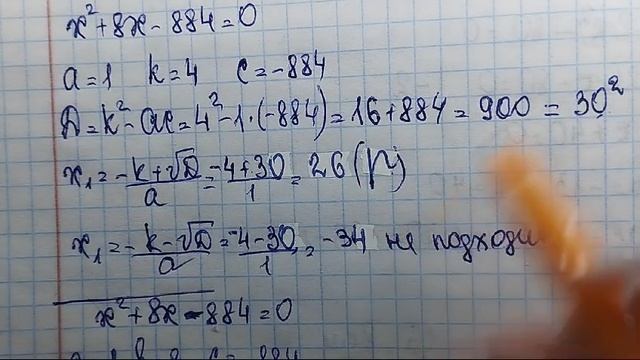 x²+8x-884=0
a=1 k=4 c=-884
D=k²-ac=4²-1·(-884)=16+884=900=30²
x₁=-k+√D/a=-4+30/1=26(р)
x₁=-k-√D/a=-4-30/1=-34 не подходи
x²+8x-884=0